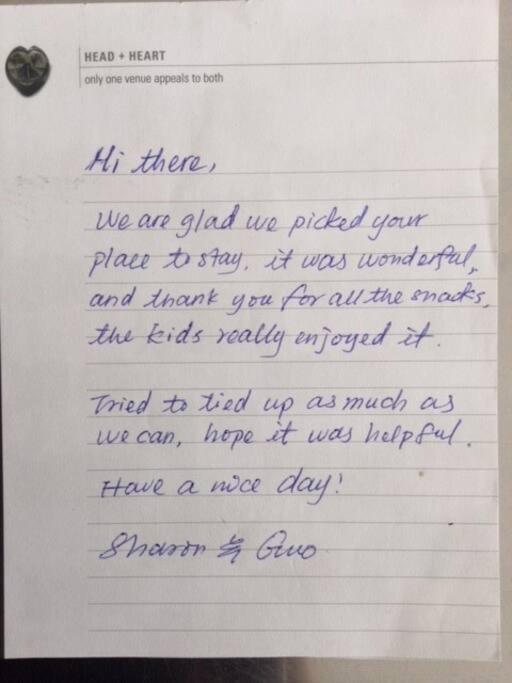 HEAD + HEART
only one venue appeals to both
Hi there,
We are glad we picked your
place to stay. it was wonderful,
and thank you for all the snacks,
the kids really enjoyed it.
Tried to tied up as much as
we can, hope it was helpful.
Have a nice day!
Sharon & Guo